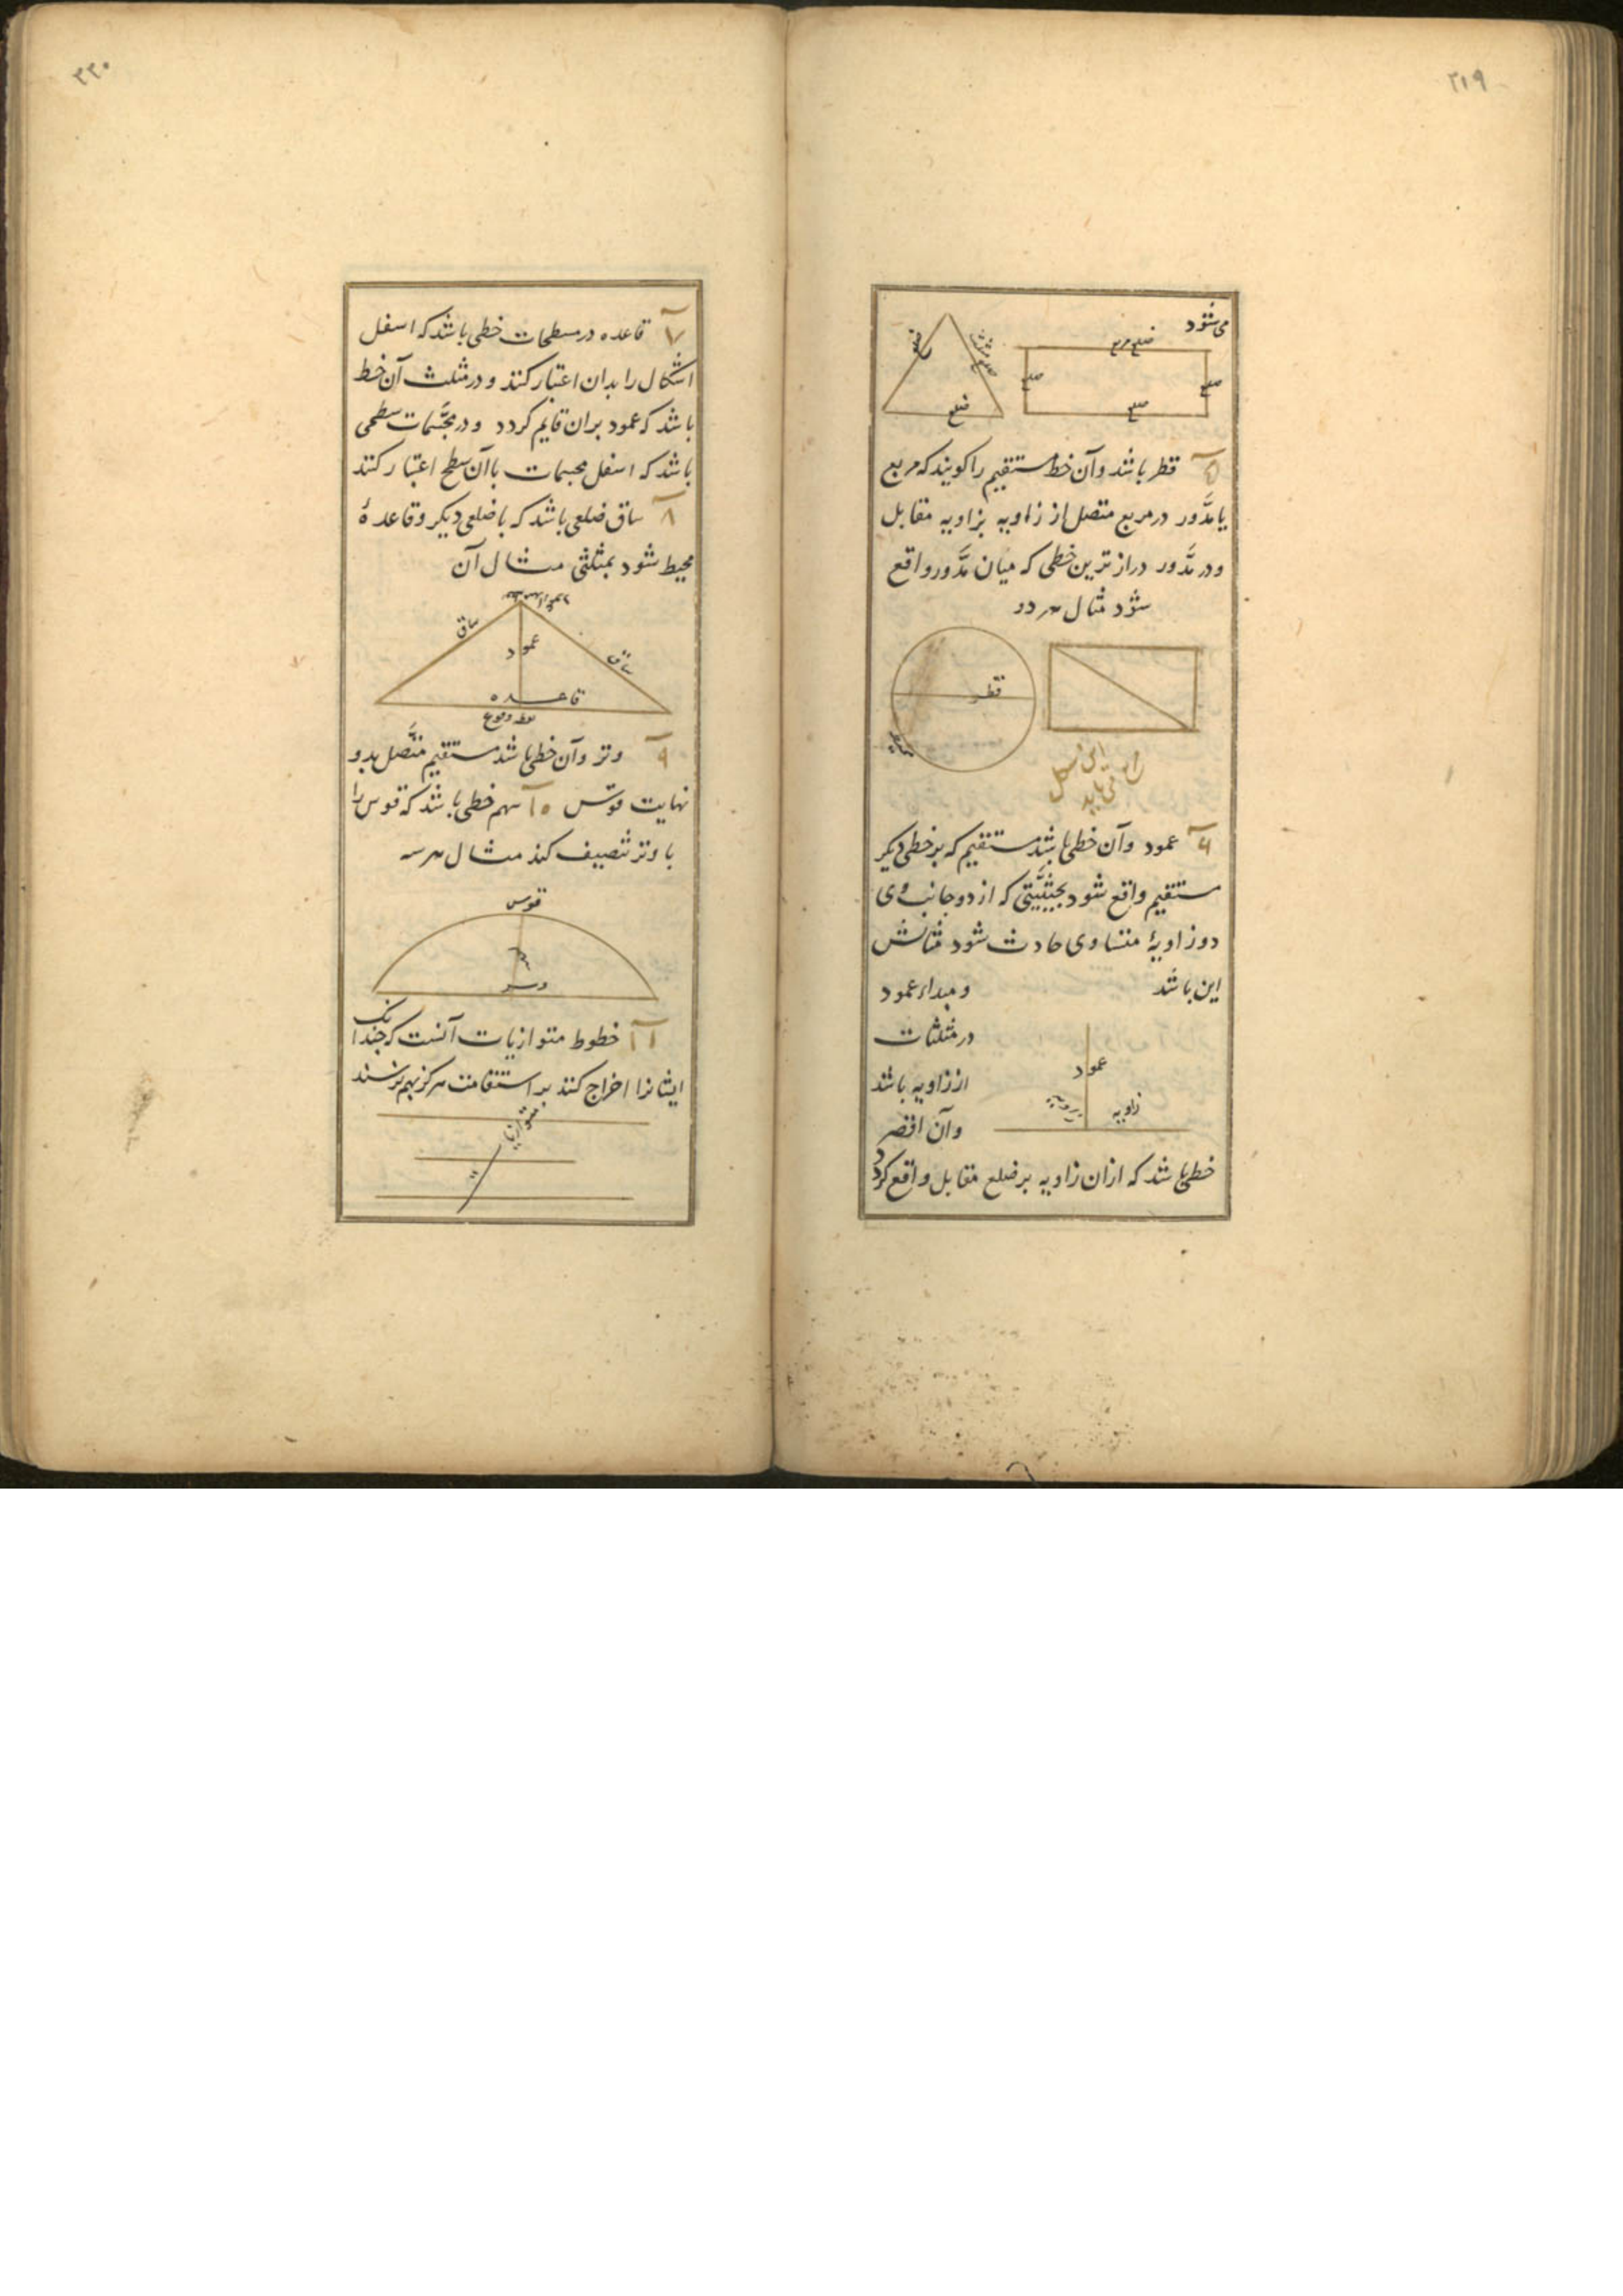 ۲۱۹
می‌شود
ضلع مربع
ضلع
ضلع
ضلع
ضلع
ضلع مثلث
ضلع
۵ قطر باشد وآن خط مستقیم را کویند که مربع
یا مدَّور در مربع متصل از زاویه بزاویه مقابل
ودر مدَّور دراز ترین خطی که میان مدَّور واقع
شود مثال هر دو
قطر
این شکل
می باید
۶ عمود وآن خطی باشد مستقیم که بر خطی دیکر
مستقیم واقع شود بحیثیَّتی که از دو جانب وی
دو زاویهٔ متساوی حادث شود مثالش
این باشد
ومبداء عمود
در مثلثات
از زاویه باشد
وآن اقصر
عمود
زاویه
زاویه
خطی باشد که ازان زاویه بر ضلع مقابل واقع کردد
۲۲۰
۷ قاعده در مسطحات خطی باشد که اسفل
اشکال را بدان اعتبار کنند و در مثلث آن خط
باشد که عمود بران قایم کردد ودر مجسَّمات سطحی
باشد که اسفل مجسمات باآن سطح اعتبار کنند
۸ ساق ضلعی باشد که با ضلعی دیکر وقاعدهٔ
محیط شود بمثلثی مثال آن
ساق
عمود
ساق
قاعده
۹ وتر وآن خطی باشد مستقیم متَّصل بدو
نهایت قوس ۱۰ سهم خطی باشد که قوس را
با وتر تنصیف کند مثال هر سه
قوس
سهم
وتر
۱۱ خطوط متوازیات آنست که چندانک
ایشانرا اخراج کنند بر استقامت هرکز بهم نرسند
متوازیات